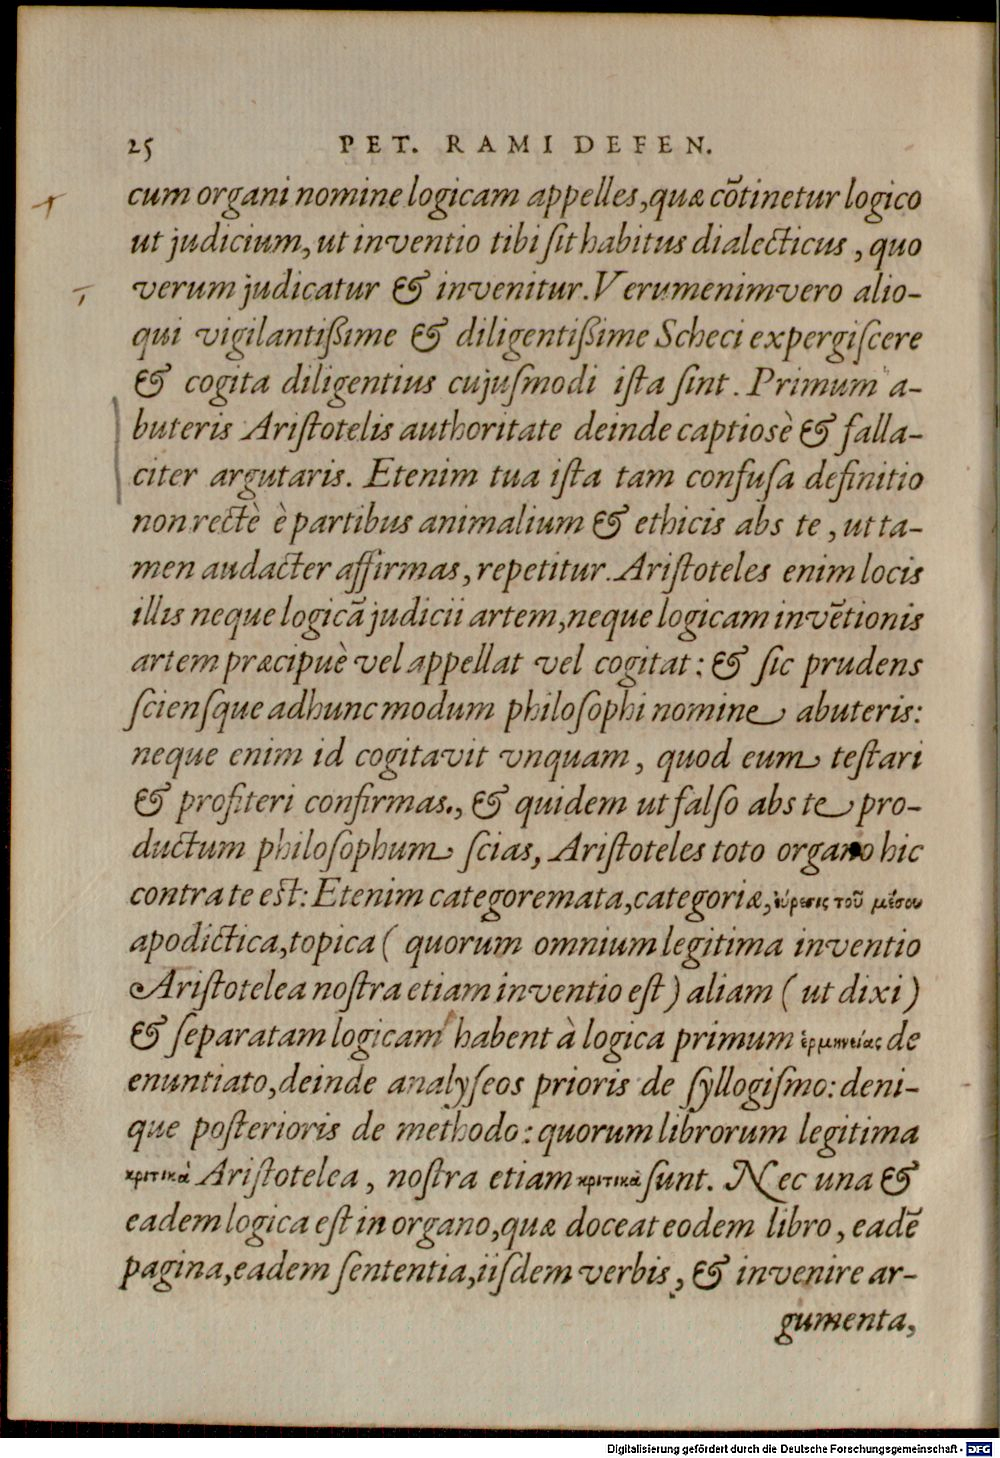 25 PET. RAMI DEFEN.
cum organi nomine logicam appelles, quæ cõtinetur logico
ut judicium, ut inventio tibi ſit habitus dialecticus, quo
verum judicatur & invenitur. Verumenimvero alio-
qui vigilantißime & diligentißime Scheci expergiſcere
& cogita diligentius cujuſmodi iſta ſint. Primum a-
buteris Ariſtotelis authoritate deinde captiosè & falla-
citer argutaris. Etenim tua iſta tam confuſa definitio
non rectè è partibus animalium & ethicis abs te, ut ta-
men audacter affirmas, repetitur. Ariſtoteles enim locis
illis neque logicã judicii artem, neque logicam invẽtionis
artem præcipuè vel appellat vel cogitat: & ſic prudens
ſcienſque ad hunc modum philoſophi nomine abuteris:
neque enim id cogitavit vnquam, quod eum teſtari
& profiteri confirmas., & quidem ut falſo abs te pro-
ductum philoſophum ſcias, Ariſtoteles toto organo hic
contra te est: Etenim categoremata, categoriæ, εὕρεσις τοῦ μέσου
apodictica, topica ( quorum omnium legitima inventio
Ariſtotelea noſtra etiam inventio eſt ) aliam ( ut dixi )
& ſeparatam logicam habent à logica primum ἑρμηνείας de
enuntiato, deinde analyſeos prioris de ſyllogiſmo: deni-
que poſterioris de methodo: quorum librorum legitima
κριτικὰ Ariſtotelea, noſtra etiam κριτικὰ ſunt. Nec una &
eadem logica eſt in organo, quæ doceat eodem libro, eadẽ
pagina, eadem ſententia, iiſdem verbis, & invenire ar-
gumenta,
Digitalisierung gefördert durch die Deutsche Forschungsgemeinschaft - DFG